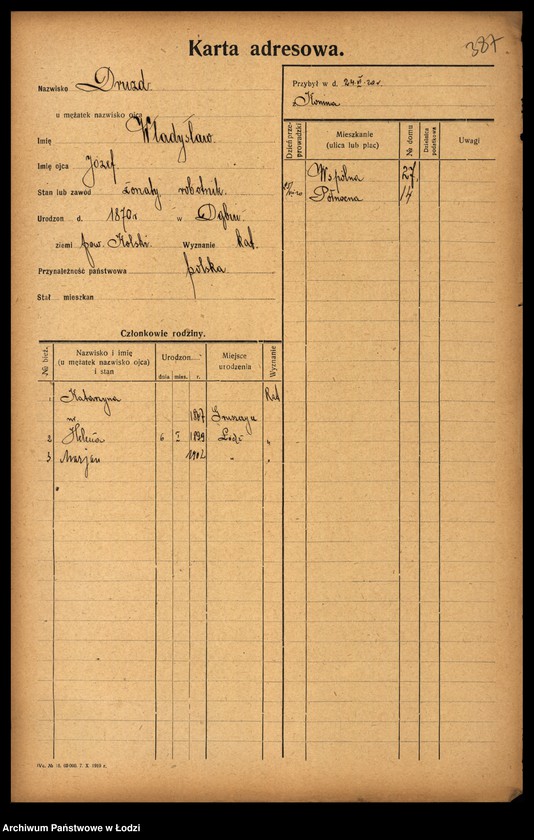 Karta adresowa.
387
Nazwisko Druzd
u mężatek nazwisko ojca
Imię Władysław
Imię ojca Józef
Stan lub zawód żonaty robotnik
Urodzon d. 1870 r w Dąbiu
ziemi pow. Kolski Wyznanie kat.
Przynależność państwowa polska
Stał mieszkan
Przybył w d. 24 VI 20 r.
Konina
Dzień przeprowadzki
Mieszkanie
(ulica lub plac)
№ domu
Dzielnica podatkowa
Uwagi
Wspólna 27
Północna 14
Członkowie rodziny.
№ bież.
Nazwisko i imię
(u mężatek nazwisko ojca)
i stan
Urodzon
dnia mies. r.
Miejsce
urodzenia
Wyznanie
1 Katarzyna Kat
1887
2 Helena 6 I 1899 Łódź "
3 Marjan 1902 " "
Archiwum Państwowe w Łodzi